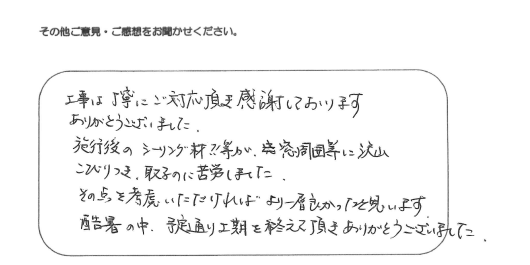 その他ご意見・ご感想をお聞かせください。
工事は丁寧にご対応頂き感謝しております
ありがとうございました.
施行後のシーリング材!!等が、窓周囲等に沢山
こびりつき、取るのに苦労しました.
その点を考慮いただければより一層良かったと思います.
酷暑の中、予定通り工期を終えて頂きありがとうございました.